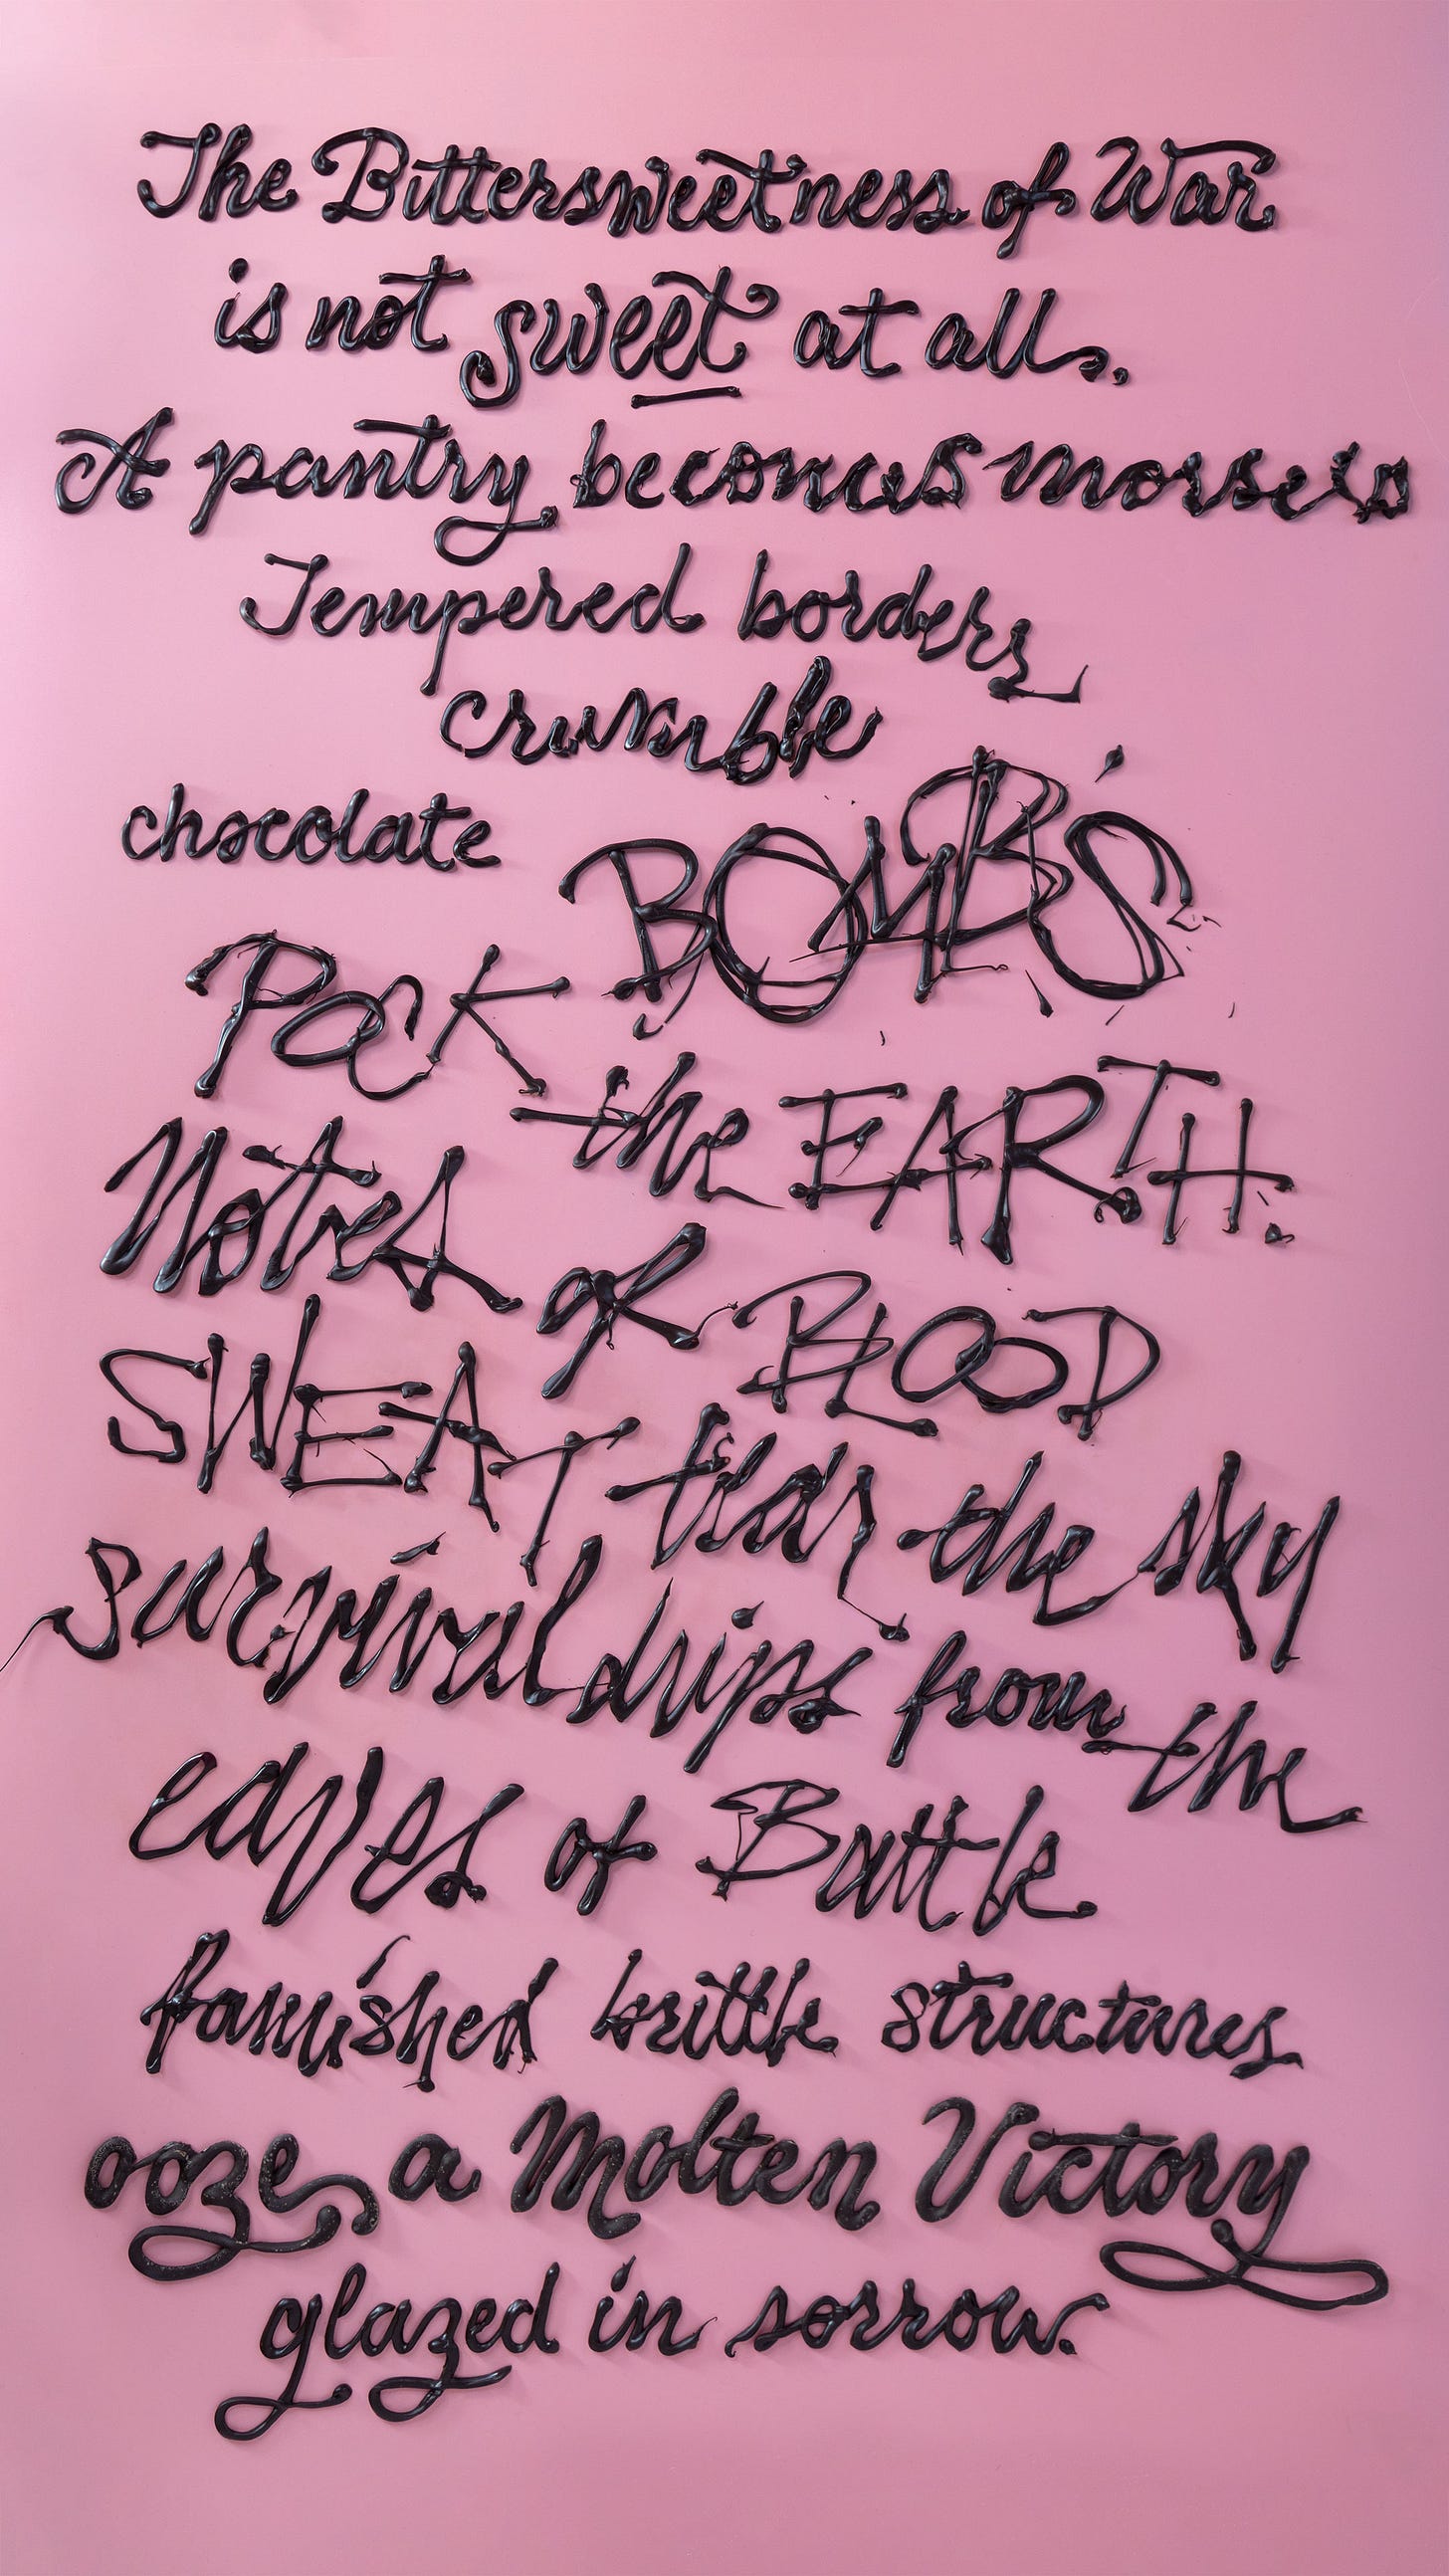 The Bittersweetness of War
is not sweet at all.
A pantry becomes morsels
Tempered borders
crumble
chocolate BOMBS
POCK the EARTH.
Notes of BLOOD
SWEAT tear the sky
survival drips from the
eaves of Battle
famished brittle structures
ooze a Molten Victory
glazed in sorrow.